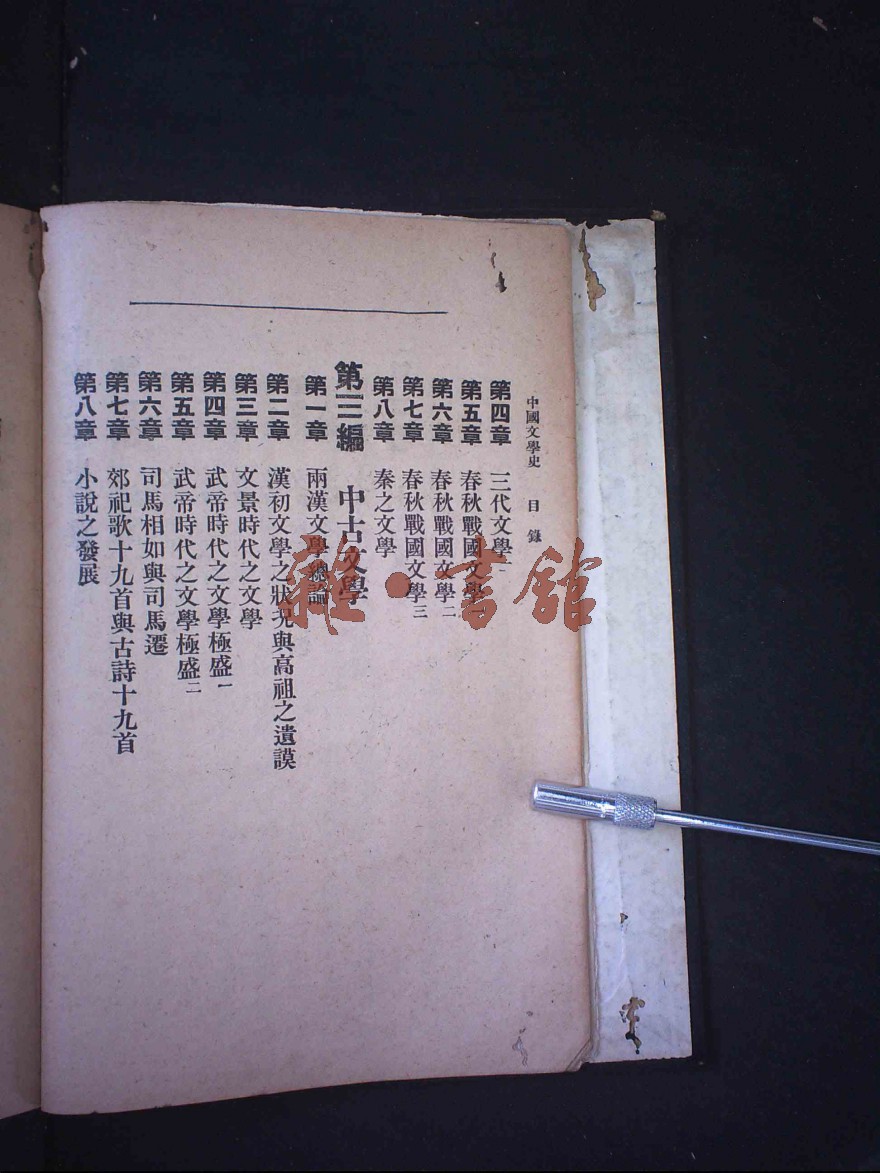 中國文學史 目錄
第四章 三代文學二
第五章 春秋戰國文學一
第六章 春秋戰國文學二
第七章 春秋戰國文學三
第八章 秦之文學
第三編 中古文學
第一章 兩漢文學總論
第二章 漢初文學之狀況與高祖之遺謨
第三章 文景時代之文學
第四章 武帝時代之文學極盛一
第五章 武帝時代之文學極盛二
第六章 司馬相如與司馬遷
第七章 郊祀歌十九首與古詩十九首
第八章 小說之發展
雜·書館